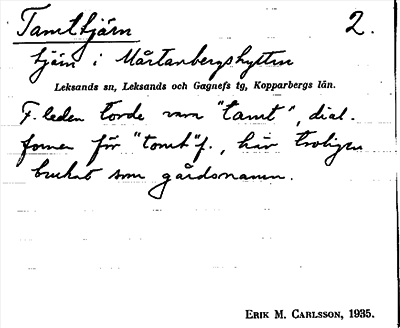 Tamttjärn 2.
tjärn i Mårtanbergshyttan
Leksands sn, Leksands och Gagnefs tg, Kopparbergs län.
F. leden torde vara "tamt", dial.
formen för "tomt" f., här troligen
brukat som gårdsnamn.
ERIK M. CARLSSON, 1935.